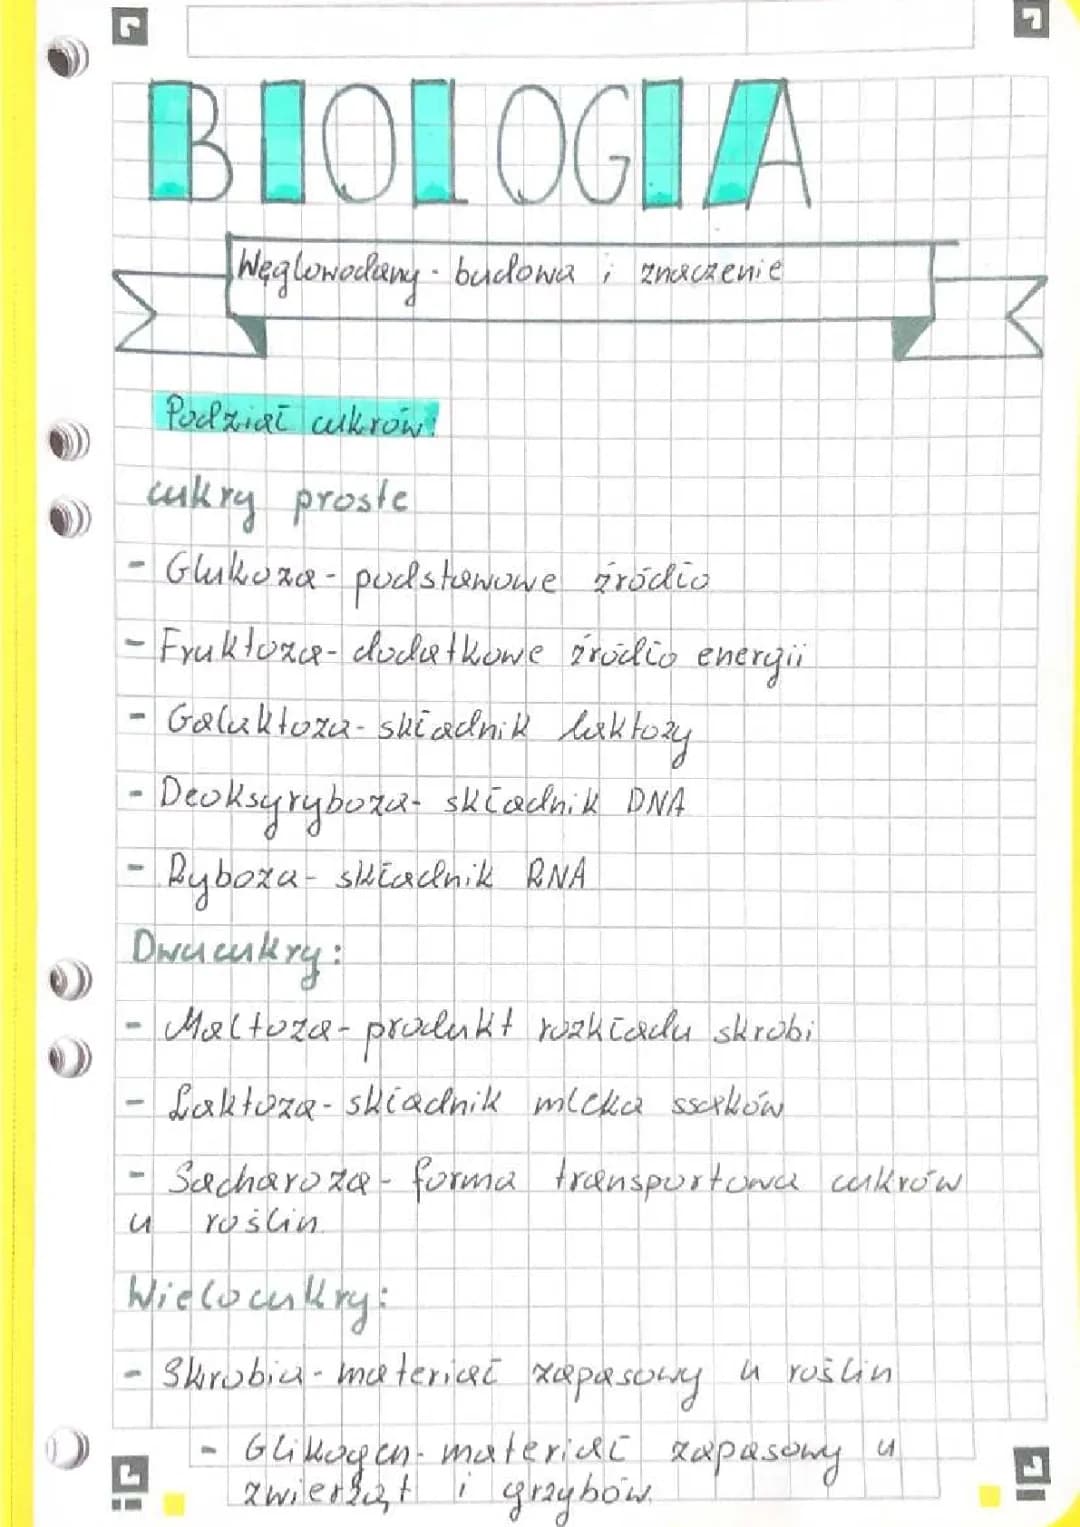 BIOLOGIA
Węglowodany - budowa i znaczenie
Podział cukrów:
cukry proste
- Glukoza - podstawowe źródło
- Fruktoza - dodatkowe źródło energii
- Galaktoza - składnik laktozy
- Deoksyryboza - składnik DNA
- Ryboza - składnik RNA
Dwucukry:
- Maltoza - produkt rozkładu skrobi
- Laktoza - składnik mleka ssaków
- Sacharoza - forma transportowa cukrów
u roślin
Wielocukry:
- Skrobia - materiał zapasowy u roślin
- Glikogen - materiał zapasowy u
zwierząt i grzybów.